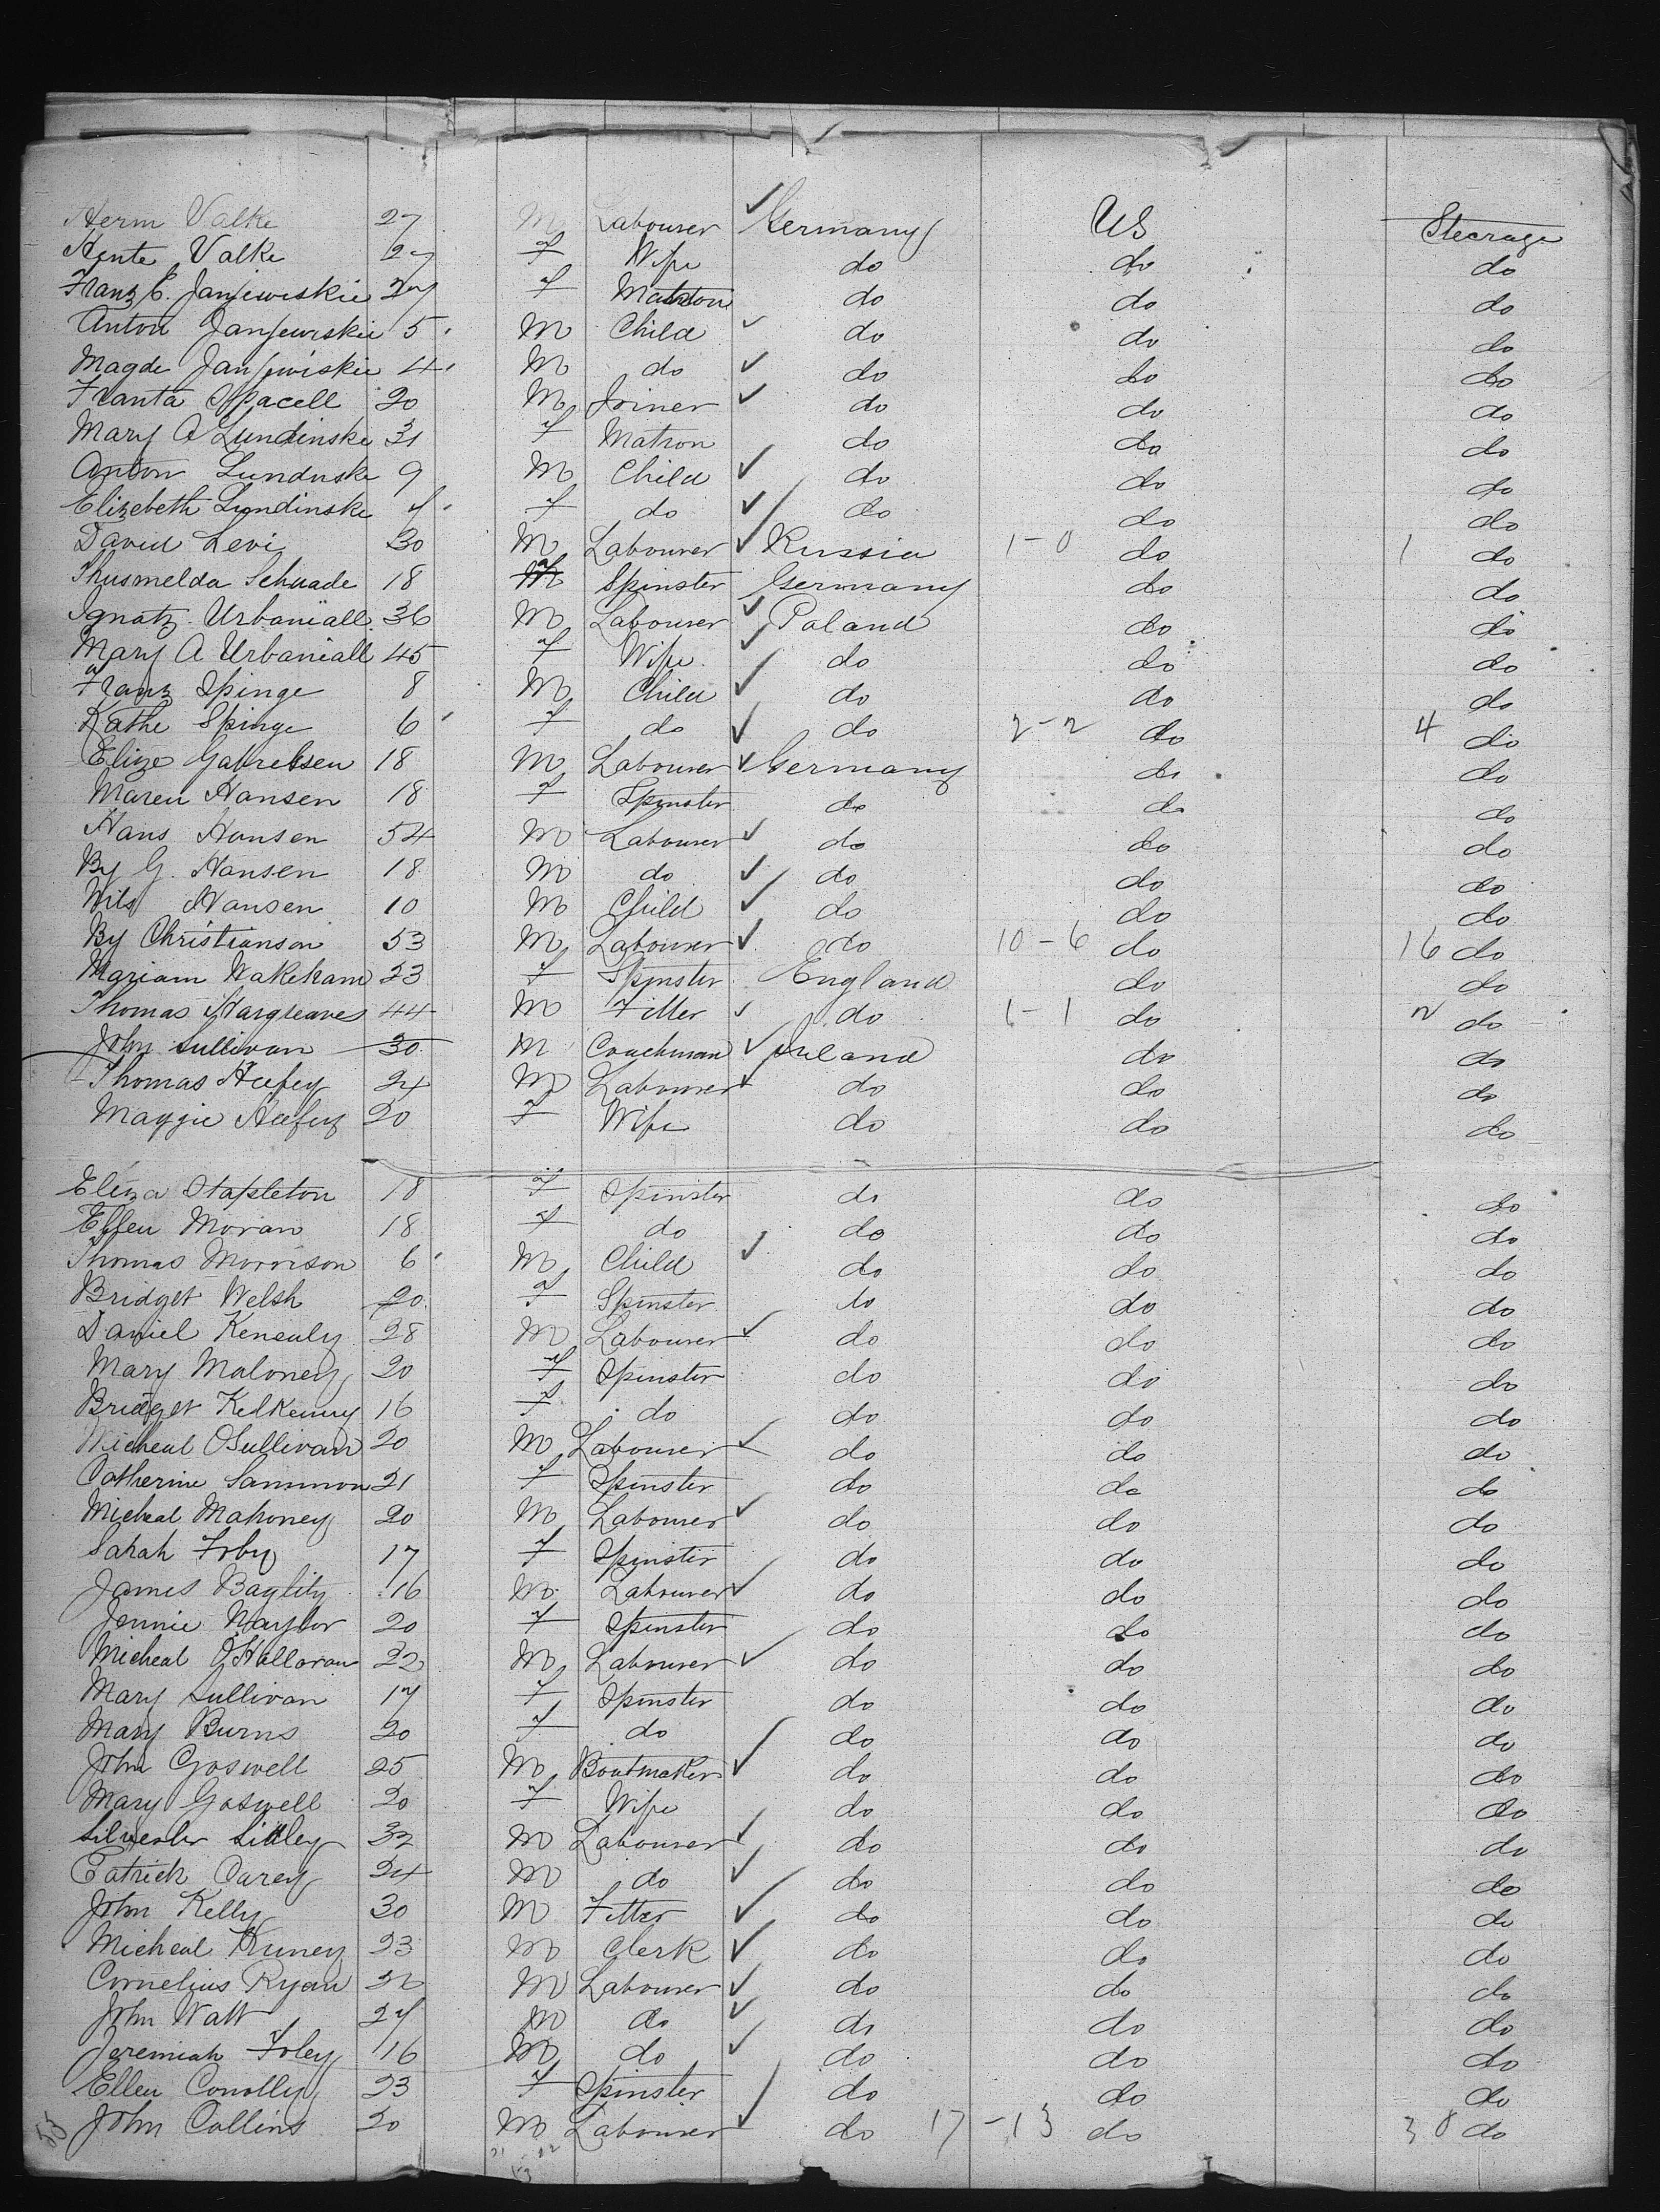 Herm Valke 27 M Labourer ✓ Germany US Steerage
Aente Valke 27 F Wife do do do
Franz C. Janjewiskie 27 F Matron do do do
Anton Janjewiskie 5 M Child ✓ do do do
Magde Janjewiskie 4 M do ✓ do do do
Franta Spacell 20 M Joiner ✓ do do do
Mary A Lundinski 31 F Matron do do do
Anton Lundnske 9 M Child ✓ do do do
Elizebeth Lundinske 7 F do ✓ do do do
David Levi 30 M Labourer ✓ Russia 1-0 do 1 do
Thusmelda Schuade 18 F Spinster Germany do do
Ignatz Urbaniall 36 M Labourer ✓ Poland do do
Mary A Urbaniall 45 F Wife ✓ do do do
Franz Spinge 8 M Child ✓ do do do
Kathe Spinge 6 F do ✓ do 2-2 do 4 do
Elize Gabrelsen 18 M Labourer ✓ Germany do do
Maren Hansen 18 F Spinster do do do
Hans Hansen 54 M Labourer ✓ do do do
By G. Hansen 18 M do ✓ do do do
Nils Hansen 10 M Child ✓ do do do
By Christianson 53 M Labourer ✓ do 10-6 do 16 do
Mariam Wakeham 23 F Spinster England do do
Thomas Hargreaves 44 M Fitter ✓ do 1-1 do 2 do
John Sullivan 30 M Coachman ✓ Ireland do do
Thomas Heefey 24 M Labourer ✓ do do do
Maggie Heefey 20 F Wife do do do
Eliza Stapleton 18 F Spinster do do do
Ellen Moran 18 F do do do do
Thomas Morrison 6 M Child ✓ do do do
Bridget Welsh 20 F Spinster do do do
Daniel Kenealy 28 M Labourer ✓ do do do
Mary Maloney 20 F Spinster do do do
Bridget Kelkenny 16 F do do do do
Micheal OSullivan 20 M Labourer ✓ do do do
Catherine Sammon 21 F Spinster do do do
Micheal Mahoney 20 M Labourer ✓ do do do
Sarah Foley 17 F Spinster do do do
James Baglity 16 M Labourer ✓ do do do
Jennie Naylor 20 F Spinster do do do
Micheal O'Halloran 22 M Labourer ✓ do do do
Mary Sullivan 17 F Spinster do do do
Mary Burns 20 F do do do do
John Goswell 25 M Bootmaker ✓ do do do
Mary Goswell 20 F Wife do do do
Silvester Sidley 32 M Labourer ✓ do do do
Patrick Carey 24 M do ✓ do do do
John Kelly 30 M Fitter ✓ do do do
Micheal Kuney 23 M Clerk ✓ do do do
Cornelius Ryan 22 M Labourer ✓ do do do
John Watt 27 M do ✓ do do do
Jeremiah Foley 16 M do ✓ do do do
Ellen Conolly 23 F Spinster do do do
John Collins 20 M Labourer ✓ do 17-13 do 30 do
53